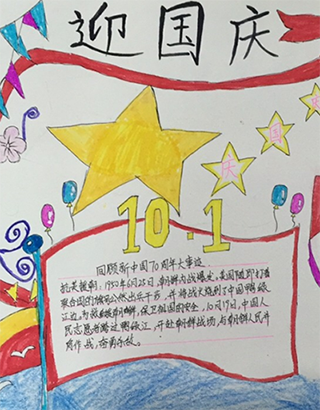 迎国庆
国
庆
10·1
回顾新中国70周年大事迹
抗美援朝:1950年6月25日,朝鲜内战爆发,美国随即打着
联合国的旗号公然出兵干,并将战火烧到了中国鸭绿
江边。为救援朝鲜,保卫祖国的安全,10月19日,中国人
民志愿者跨过鸭绿江,开赴朝鲜战场,与朝鲜人民并
肩作战,奋勇杀敌。